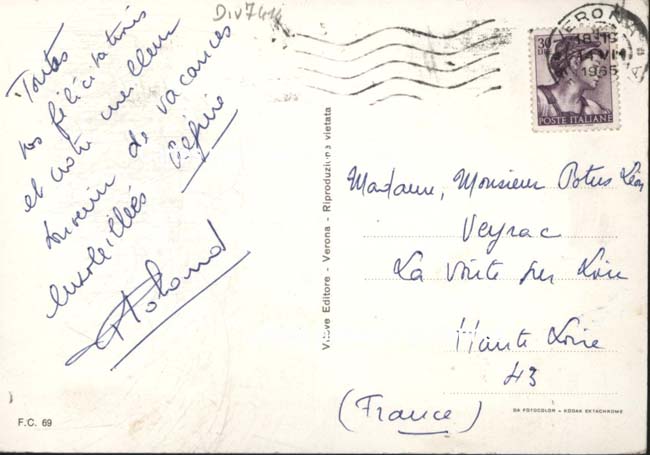 Div7414
Toutes
nos félicitations
et notre meilleur
souvenir de vacances
ensoleillées
Roland
VERONA
18-19
VII
1965
30
POSTE ITALIANE
Madame, Monsieur Potus Léon
Veyrac
La Voûte sur Loire
Haute Loire
43
(France)
Editore - Verona - Riproduzione vietata
F.C. 69
DA FOTOCOLOR - KODAK EKTACHROME